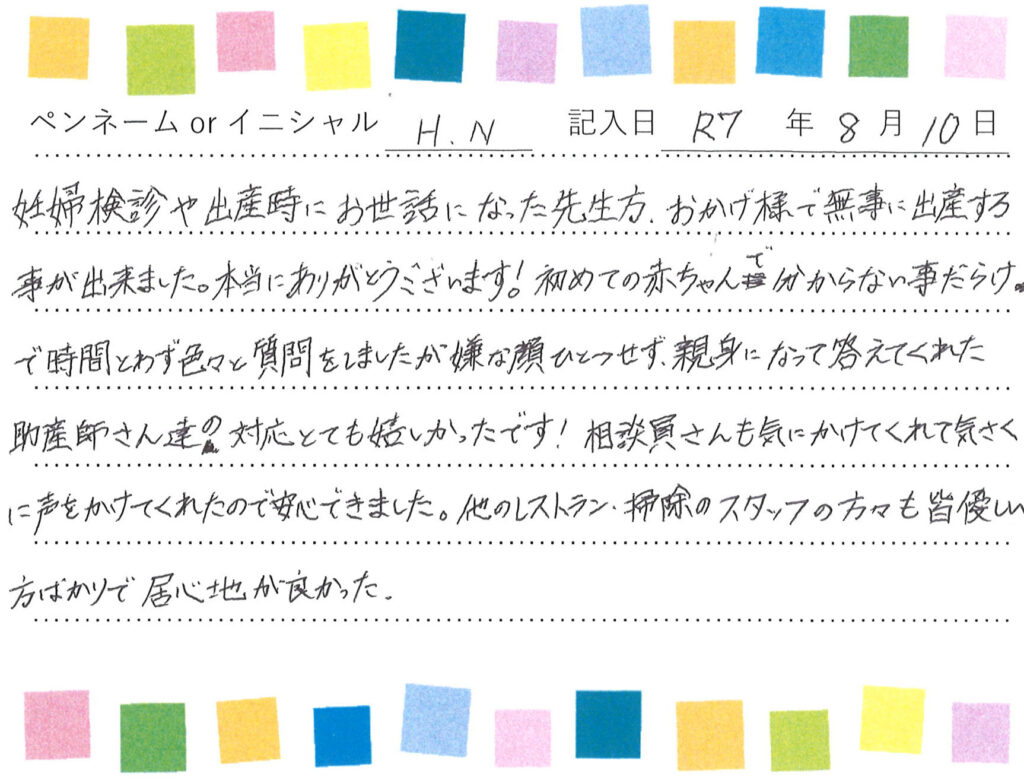 ペンネーム or イニシャル H.N 記入日 R7 年 8 月 10 日
妊婦検診や出産時にお世話になった先生方、おかげ様で無事に出産する
事が出来ました。本当にありがとうございます!初めての赤ちゃんで分からない事だらけ
で時間とわず色々と質問をしましたが嫌な顔ひとつせず、親身になって答えてくれた
助産師さん達の対応とても嬉しかったです!相談員さんも気にかけてくれて気さく
に声をかけてくれたので安心できました。他のレストラン・掃除のスタッフの方々も皆優しい
方ばかりで居心地が良かった.